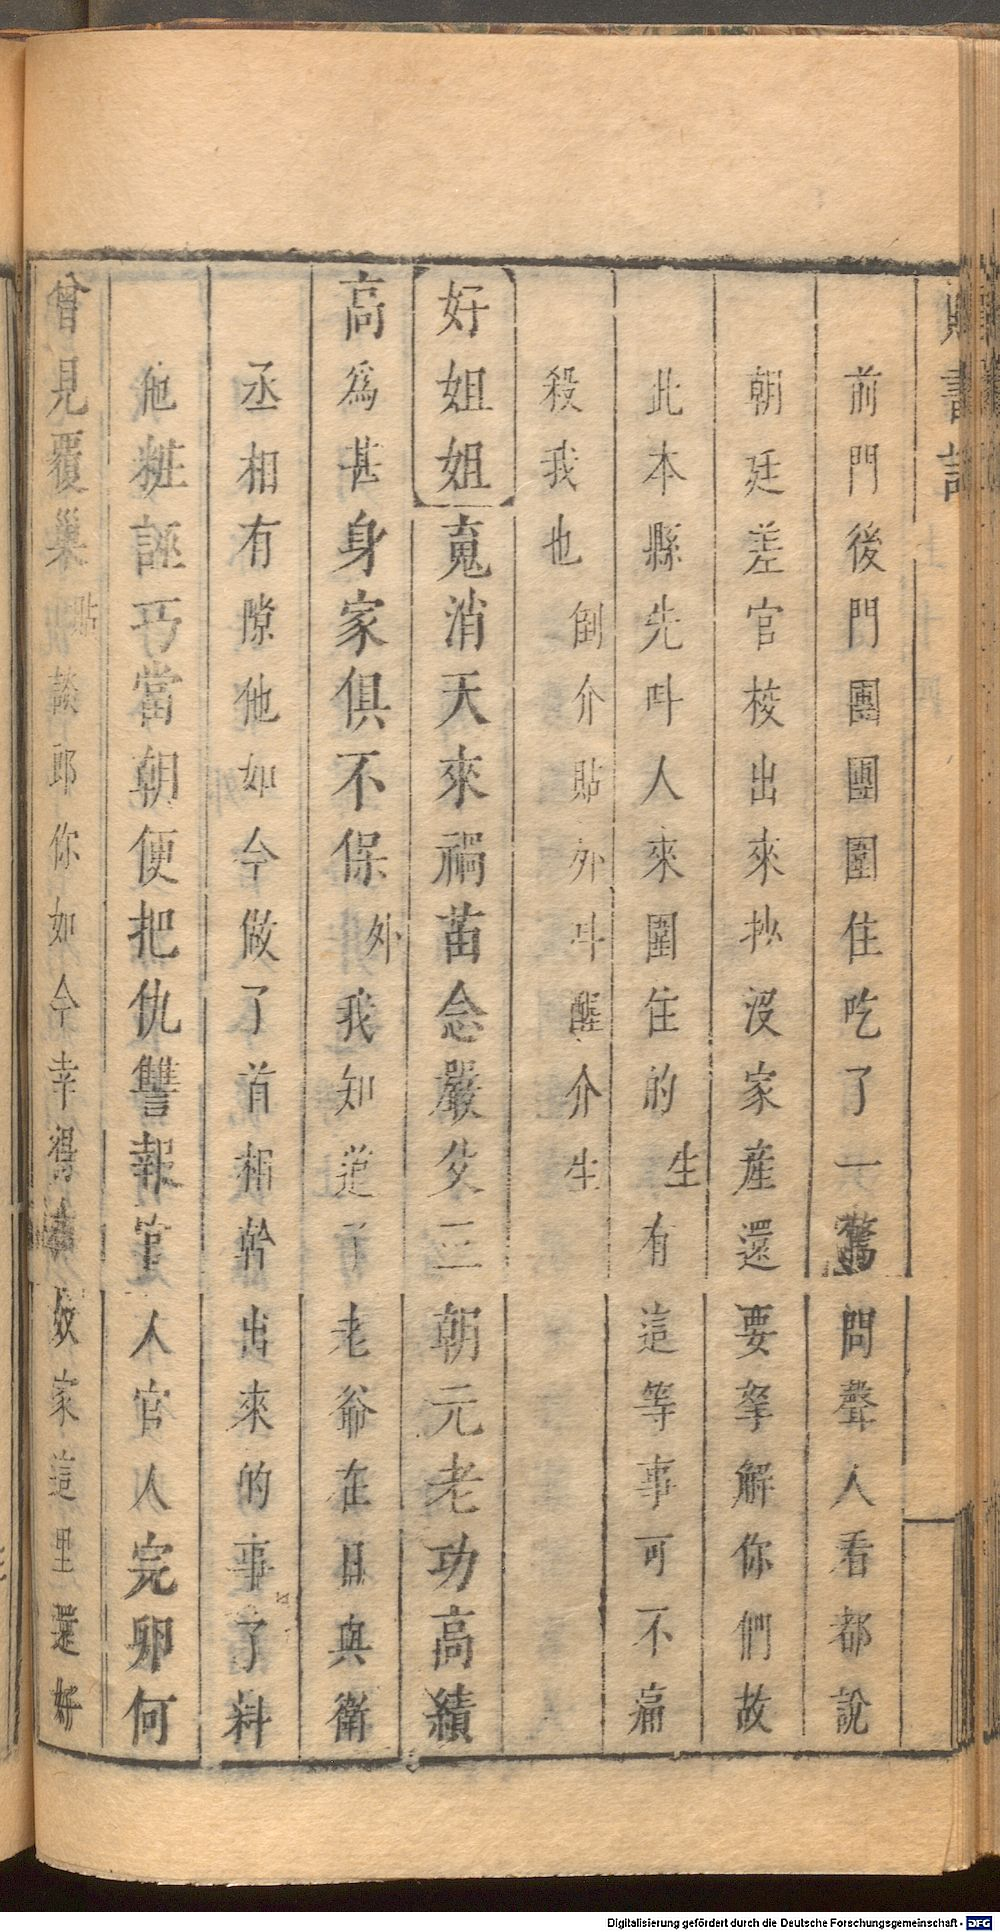 前門後門團團圍住吃了一驚問聲人看都說
朝廷差官校出來抄沒家產還要拏解你們故
此本縣先呌人來圍住的生有這等事可不痛
殺我也倒介貼外呌醒介生
好姐姐䰟消天來禍苗念嚴父三朝元老功高績
高為甚身家俱不保外我知道了老爺在日與衛
丞相有隙他如今做了首相幹出來的事了料
他粧誣巧當朝便把仇讐報官人官人完卵何
曾見覆巢貼談郎你如今幸得奴家這里還好
Digitalisierung gefördert durch die Deutsche Forschungsgemeinschaft - DFG